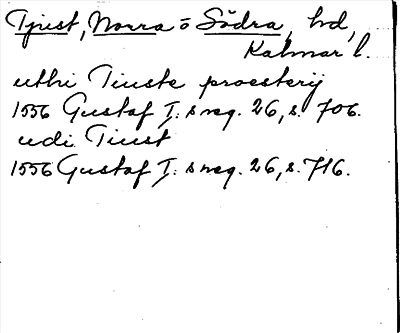 Tjust, Norra o Södra, hd,
Kalmar l.
uthi Tiuste proesterij
1556 Gustaf I:s reg. 26, s. 706.
udi Tiust
1556 Gustaf I:s reg. 26, s. 716.